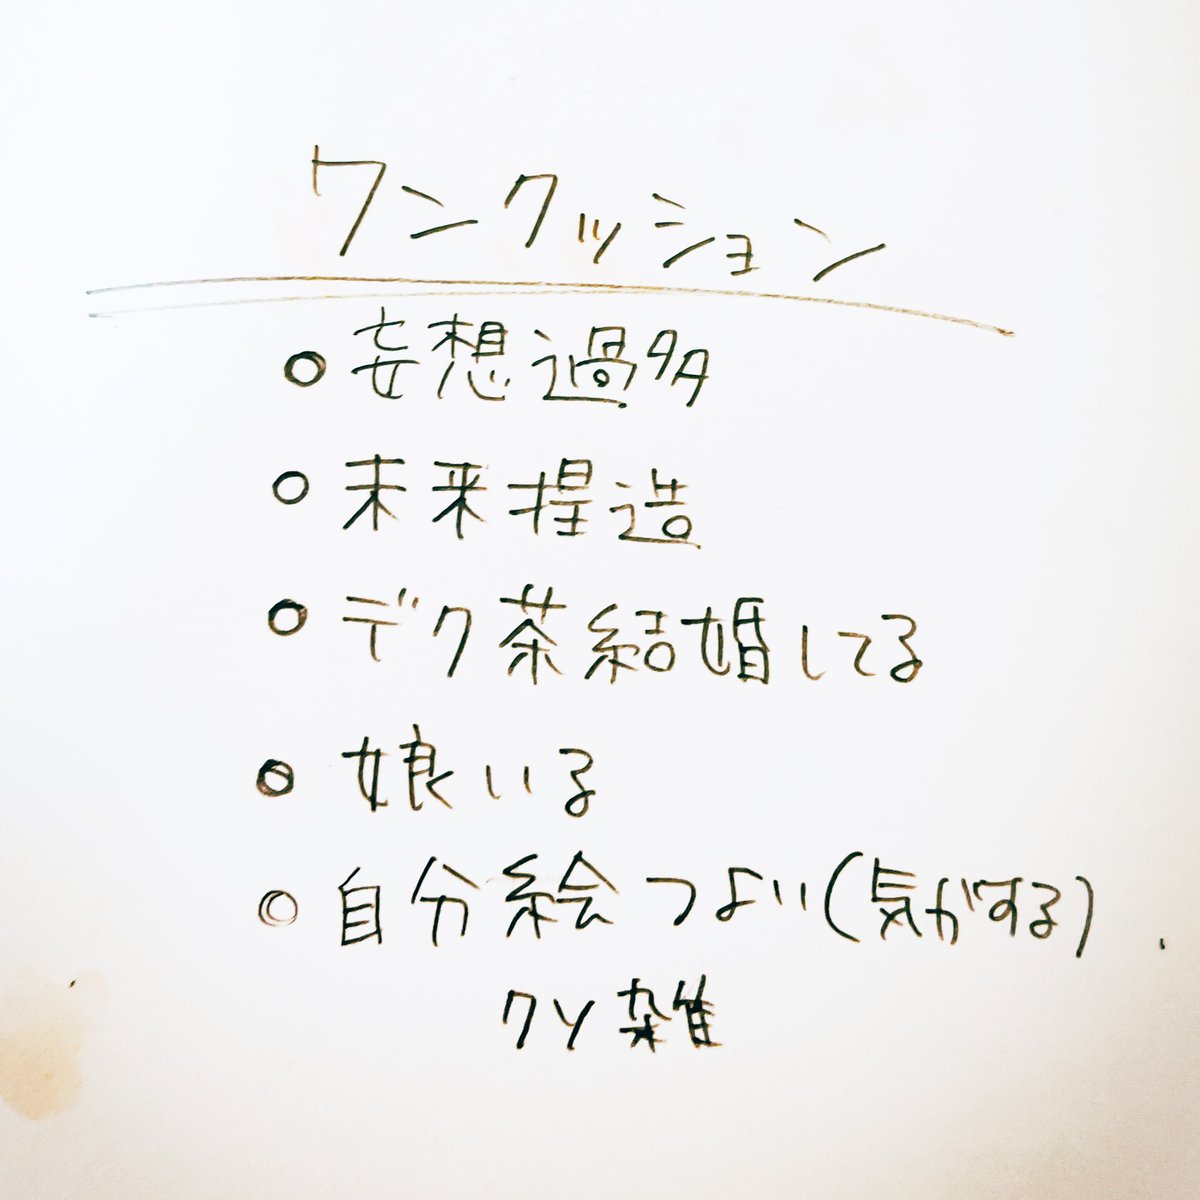 ワンクッション
○妄想過多
○未来捏造
○デク茶結婚してる
○娘いる
○自分絵つよい(気がする)
クソ雑